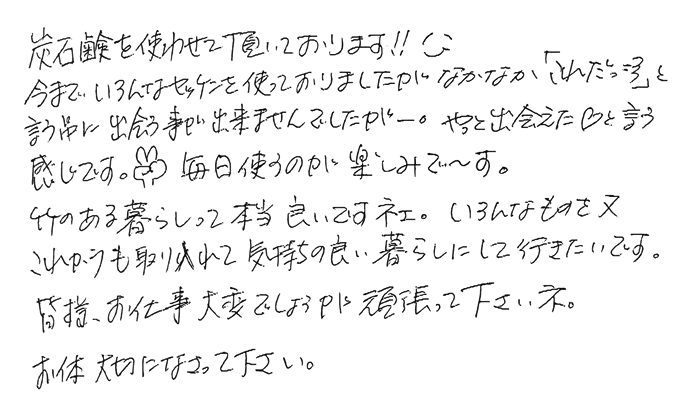 炭石鹸を使わせて頂いております!!
今までいろんなセッケンを使っておりましたがなかなか「これだっっ!!」と
言う品に出会う事が出来ませんでしたがー。やっと出会えた♡と言う
感じです。毎日使うのが楽しみで〜す。
竹のある暮らしって本当良いですネェ。いろんなものを又
これからも取り入れて気持の良い暮らしにして行きたいです。
皆様、お仕事大変でしょうが頑張って下さいネ。
お体大切になさって下さい。